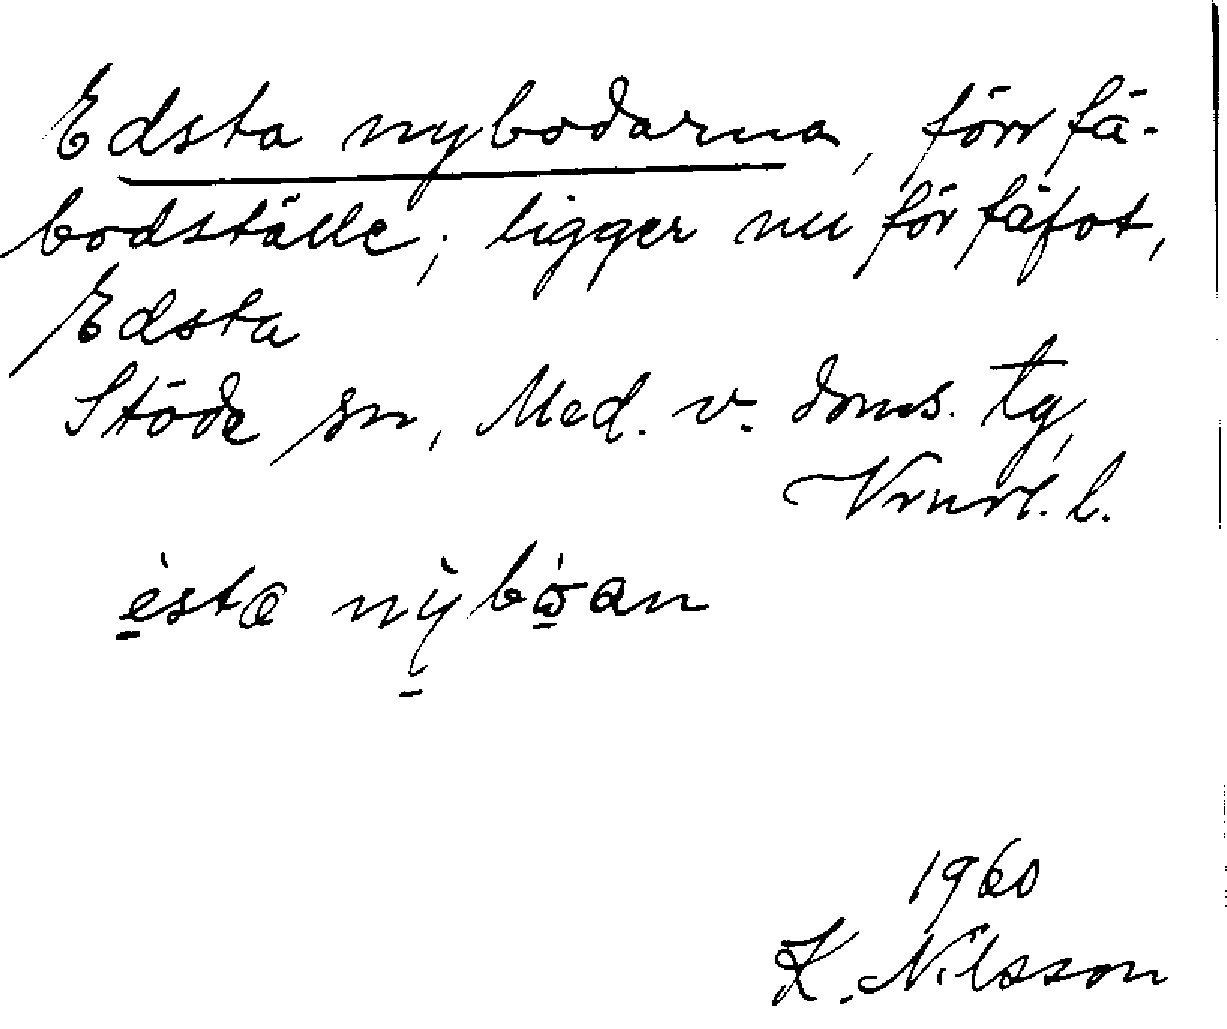 Edsta nybodarna, förr fä-
bodställe; ligger nu för fäfot,
Edsta
Stöde sn, Med. v. doms. tg,
Vrnrl. l.
èsta nỳbòan
1960
K. Nilsson